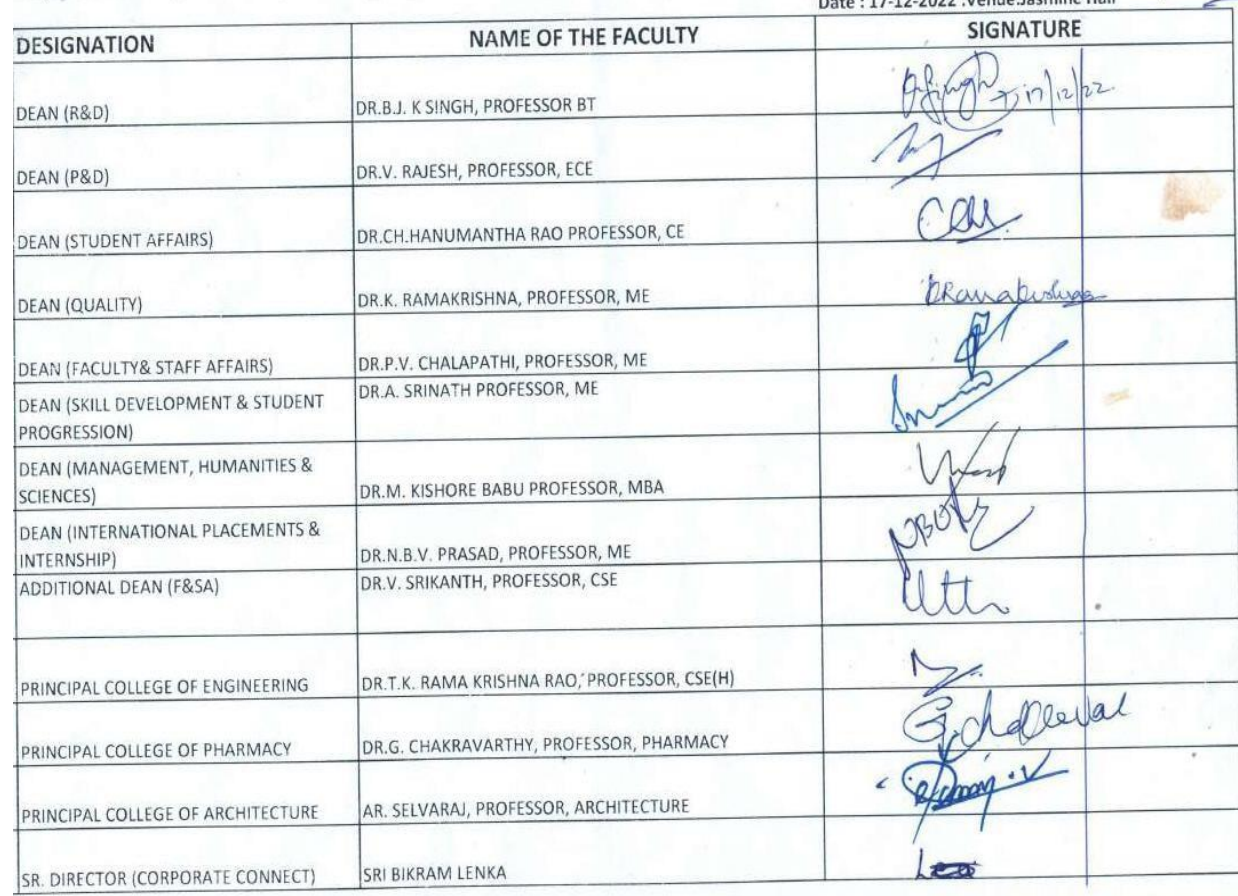 Date : 17-12-2022 .Venue:Jasmine Hall
DESIGNATION NAME OF THE FACULTY SIGNATURE
DEAN (R&D) DR.B.J. K SINGH, PROFESSOR BT 17/12/22
DEAN (P&D) DR.V. RAJESH, PROFESSOR, ECE
DEAN (STUDENT AFFAIRS) DR.CH.HANUMANTHA RAO PROFESSOR, CE
DEAN (QUALITY) DR.K. RAMAKRISHNA, PROFESSOR, ME
DEAN (FACULTY& STAFF AFFAIRS) DR.P.V. CHALAPATHI, PROFESSOR, ME
DEAN (SKILL DEVELOPMENT & STUDENT DR.A. SRINATH PROFESSOR, ME
PROGRESSION)
DEAN (MANAGEMENT, HUMANITIES &
SCIENCES) DR.M. KISHORE BABU PROFESSOR, MBA
DEAN (INTERNATIONAL PLACEMENTS &
INTERNSHIP) DR.N.B.V. PRASAD, PROFESSOR, ME
ADDITIONAL DEAN (F&SA) DR.V. SRIKANTH, PROFESSOR, CSE
PRINCIPAL COLLEGE OF ENGINEERING DR.T.K. RAMA KRISHNA RAO, PROFESSOR, CSE(H)
PRINCIPAL COLLEGE OF PHARMACY DR.G. CHAKRAVARTHY, PROFESSOR, PHARMACY
PRINCIPAL COLLEGE OF ARCHITECTURE AR. SELVARAJ, PROFESSOR, ARCHITECTURE
SR. DIRECTOR (CORPORATE CONNECT) SRI BIKRAM LENKA